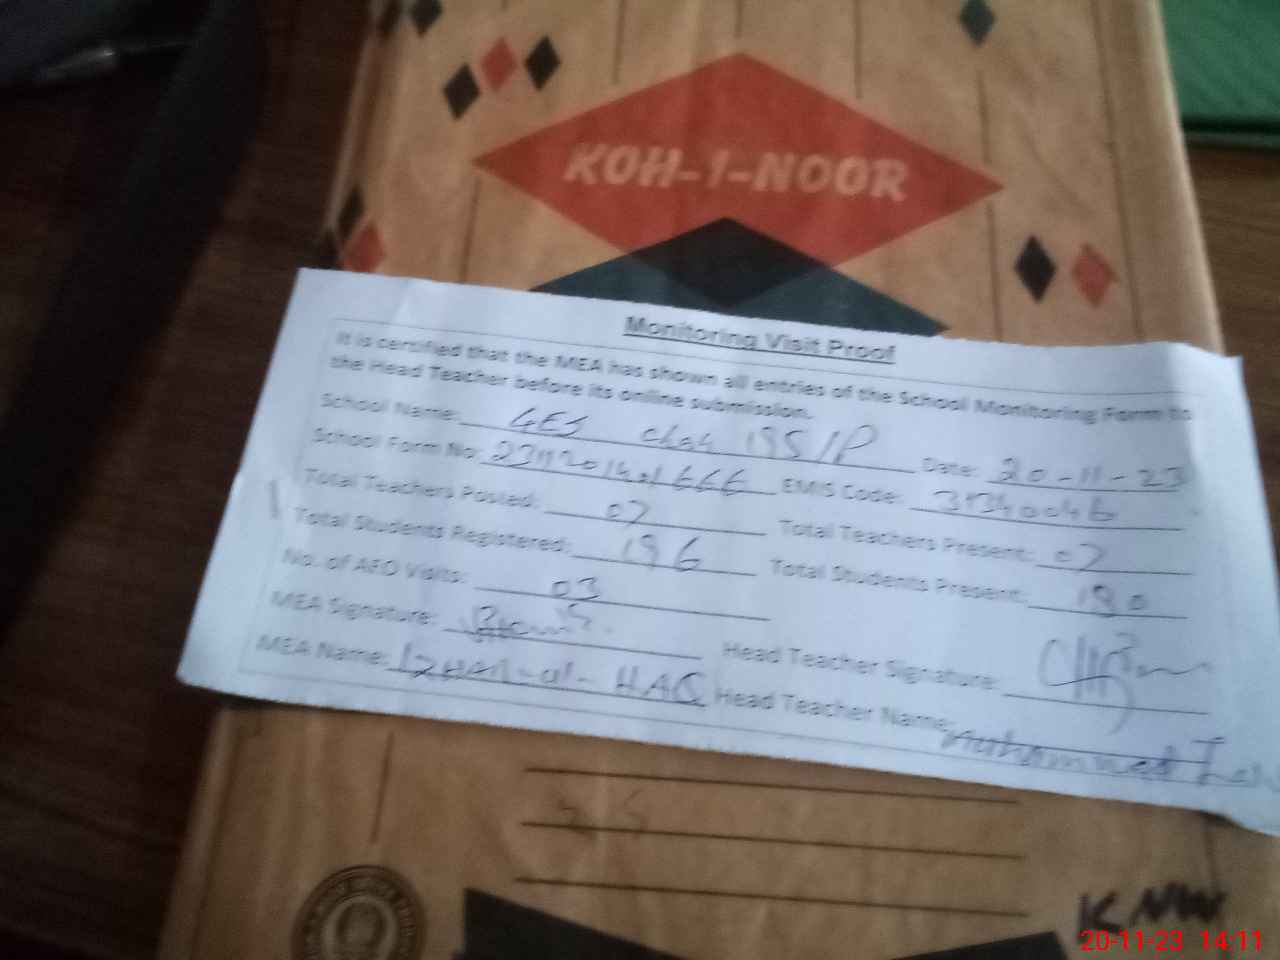 KOH-I-NOOR
Monitoring Visit Proof
It is certified that the MEA has shown all entries of the School Monitoring Form to
the Head Teacher before its online submission.
School Name: GES Chak 195/P Date: 20-11-23
School Form No: EMIS Code:
Total Teachers Posted: 07 Total Teachers Present: 07
Total Students Registered: 196 Total Students Present: 190
No. of AEO Visits: 03
MEA Signature: Head Teacher Signature:
MEA Name: -ul-HAQ Head Teacher Name: Muhammad
K NW
20-11-23 14:11